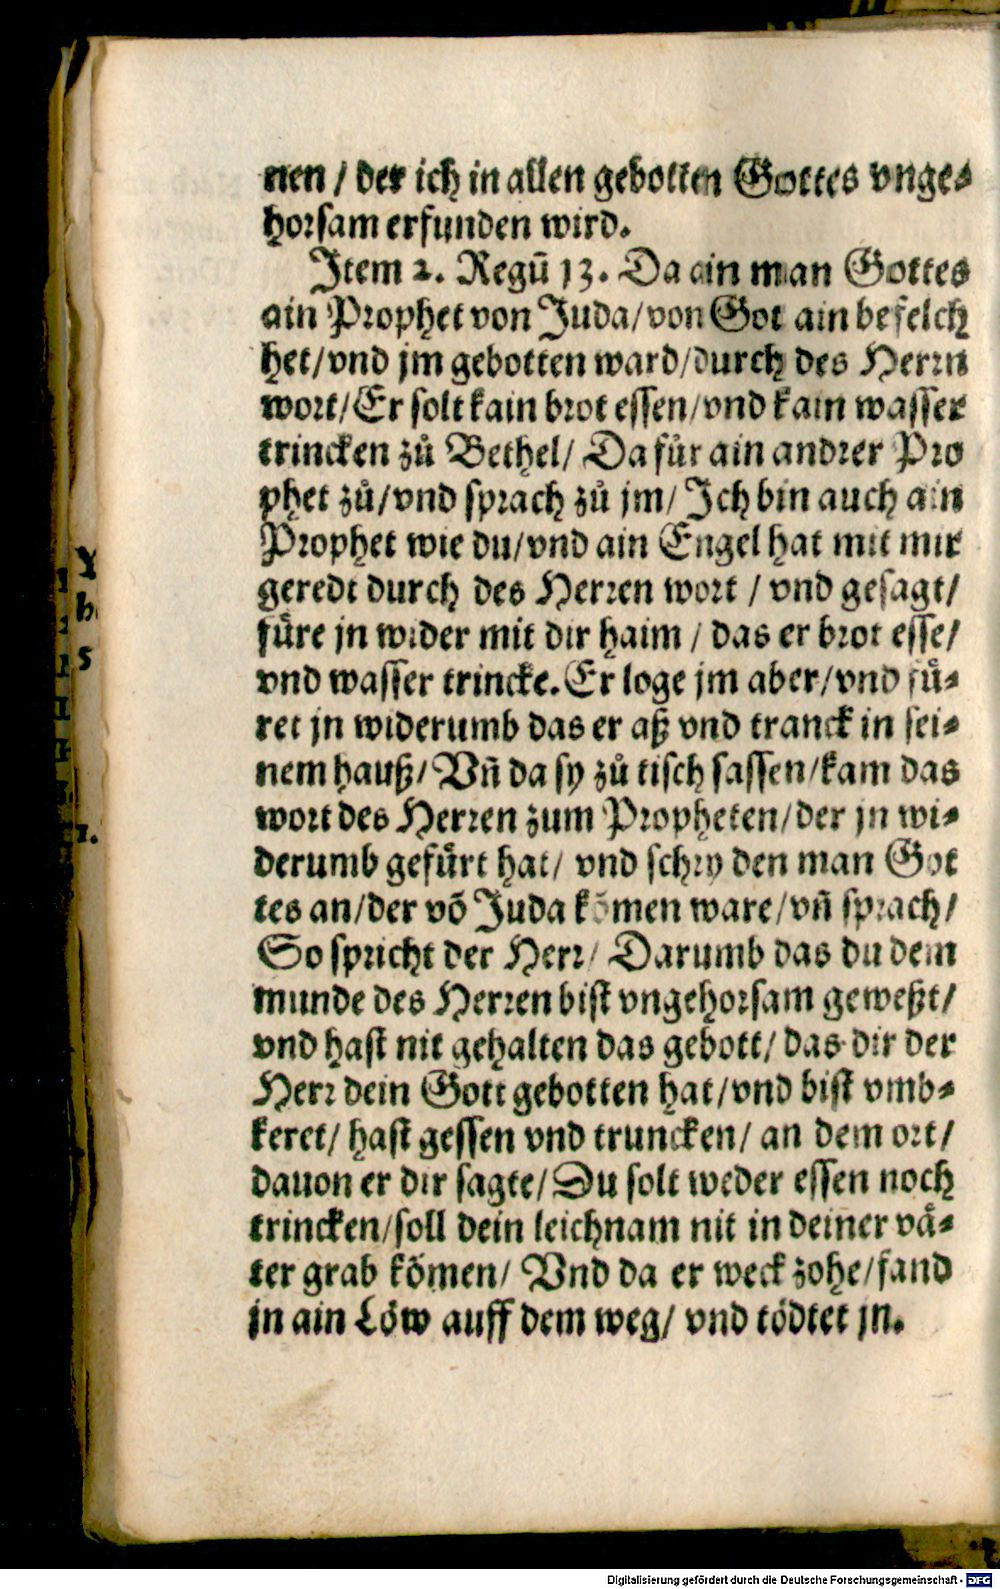 nen / der ich in allen gebotten Gottes vnge⸗
horsam erfunden wird.
Item 2. Regū 13. Da ain man Gottes
ain Prophet von Juda/von Got ain befelch
het/vnd jm gebotten ward/durch des Herrn
wort/Er solt kain brot essen/vnd kain wasser
trincken zů Bethel/ Da fůr ain andrer Pro
phet zů/vnd sprach zů jm/ Ich bin auch ain
Prophet wie du/vnd ain Engel hat mit mir
geredt durch des Herren wort / vnd gesagt/
fůre jn wider mit dir haim / das er brot esse/
vnd wasser trincke. Er loge jm aber/vnd fů⸗
ret jn widerumb das er aß vnd tranck in sei⸗
nem hauß/ Vñ da sy zů tisch sassen/kam das
wort des Herren zum Propheten/der jn wi⸗
derumb gefůrt hat/ vnd schry den man Got
tes an/der võ Juda kõmen ware/vñ sprach/
So spricht der Herr/ Darumb das du dem
munde des Herren bist vngehorsam geweßt/
vnd hast nit gehalten das gebott/ das dir der
Herr dein Gott gebotten hat/vnd bist vmb⸗
keret/ hast gessen vnd truncken/ an dem ort/
dauon er dir sagte/ Du solt weder essen noch
trincken/soll dein leichnam nit in deiner vå⸗
ter grab kõmen/ Vnd da er weck zohe/fand
jn ain Lőw auff dem weg/ vnd tödtet jn.
Digitalisierung gefördert durch die Deutsche Forschungsgemeinschaft - DFG